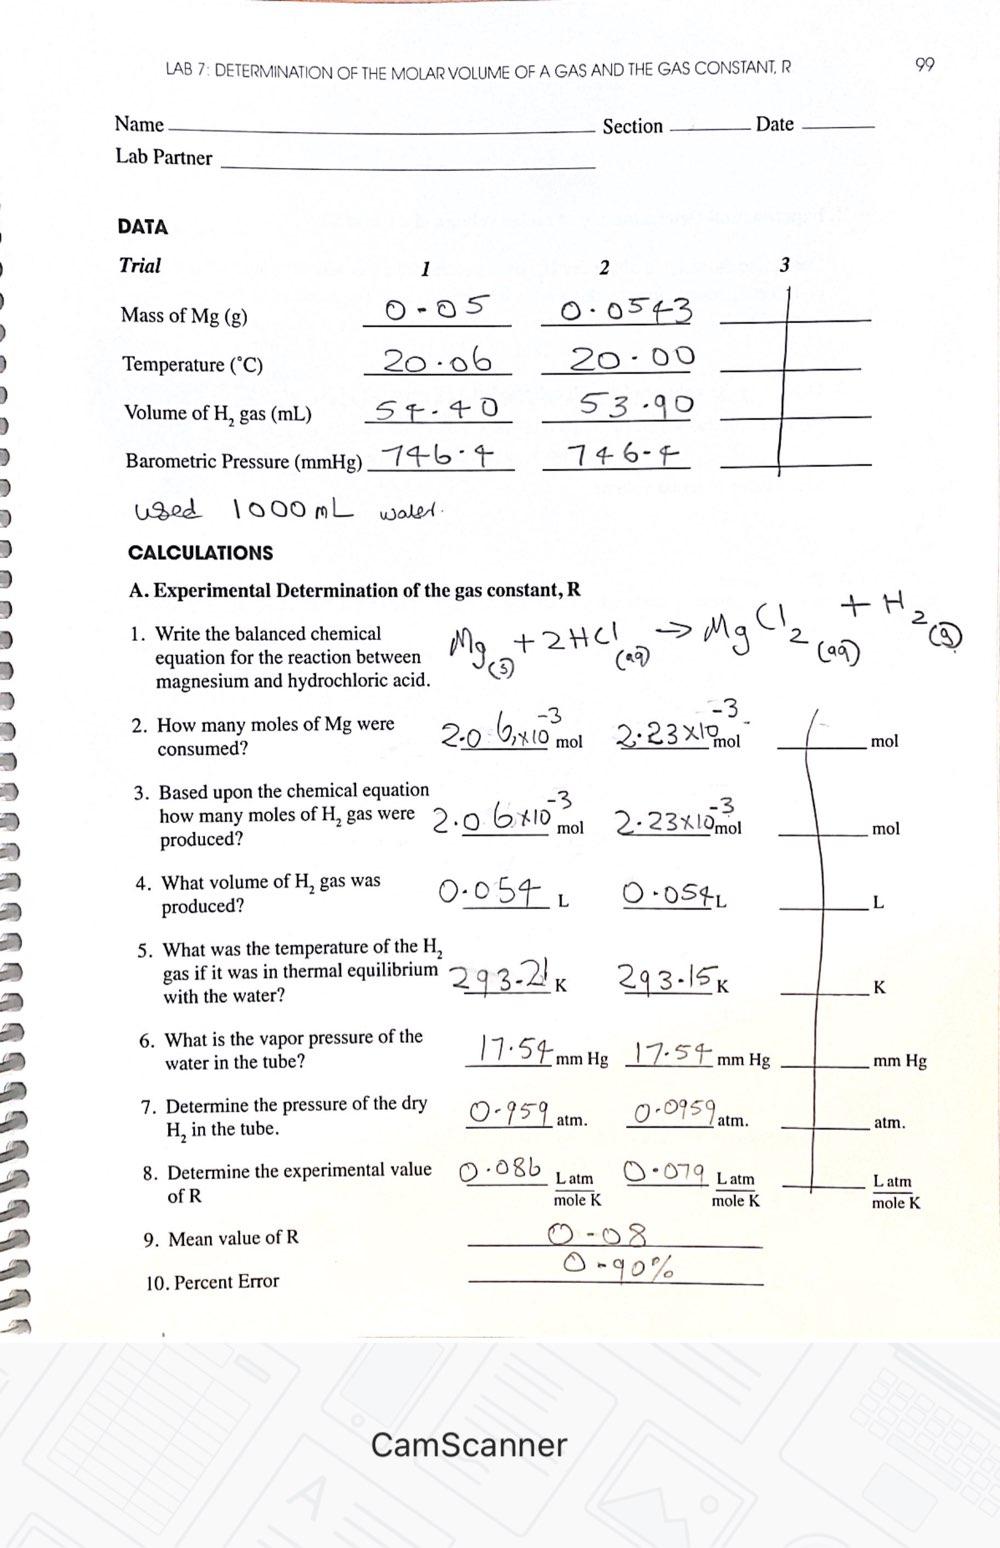 LAB 7: DETERMINATION OF THE MOLAR VOLUME OF A GAS AND THE GAS CONSTANT, R 99
Name Section Date
Lab Partner
DATA
Trial 1 2 3
Mass of Mg (g) 0.05 0.0543
Temperature (°C) 20.06 20.00
Volume of H₂ gas (mL) 54.40 53.90
Barometric Pressure (mmHg) 746.4 746.4
used 1000 mL water.
CALCULATIONS
A. Experimental Determination of the gas constant, R
1. Write the balanced chemical
equation for the reaction between
magnesium and hydrochloric acid.
Mg(s) + 2HCl(aq) → MgCl₂(aq) + H₂(g)
2. How many moles of Mg were
consumed? 2.06×10⁻³ mol 2.23×10⁻³ mol mol
3. Based upon the chemical equation
how many moles of H₂ gas were
produced? 2.06×10⁻³ mol 2.23×10⁻³ mol mol
4. What volume of H₂ gas was
produced? 0.054 L 0.054 L L
5. What was the temperature of the H₂
gas if it was in thermal equilibrium
with the water? 293.21 K 293.15 K K
6. What is the vapor pressure of the
water in the tube? 17.54 mm Hg 17.54 mm Hg mm Hg
7. Determine the pressure of the dry
H₂ in the tube. 0.959 atm. 0.0959 atm. atm.
8. Determine the experimental value
of R 0.086 L atm 0.079 L atm L atm
mole K mole K mole K
9. Mean value of R 0.08
10. Percent Error 0.90%
CamScanner